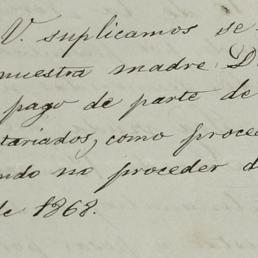 V. suplicamos se
nuestra madre D
pago de parte de
tariados, como proced
ndo no proceder d
de 1868.